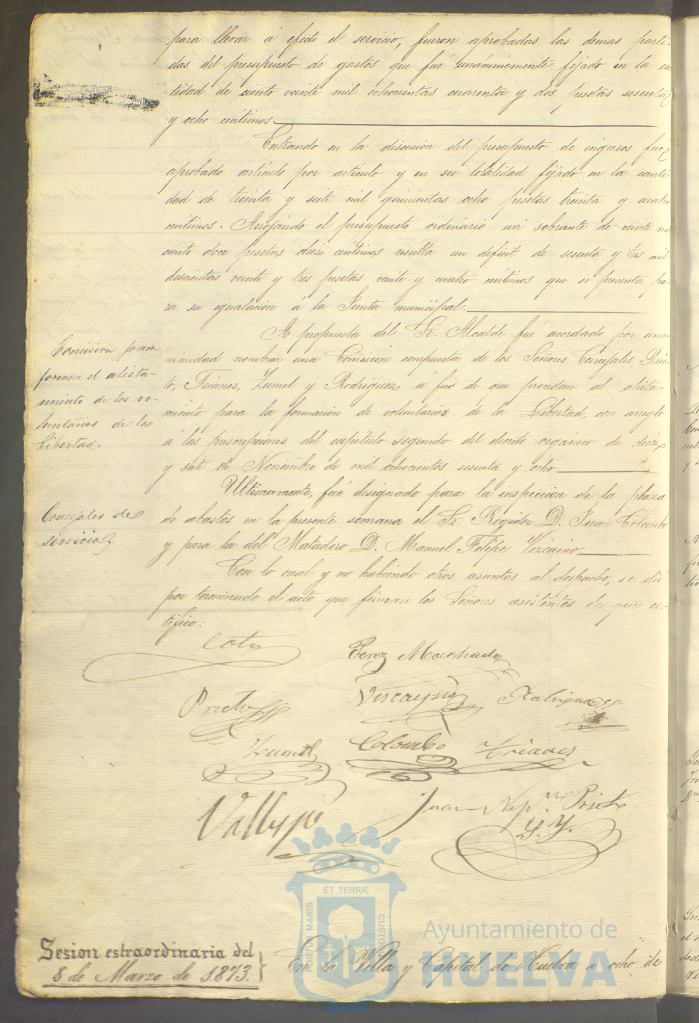 para llevar á efecto el servicio, fueron aprobadas las demas parti-
das del presupuesto de gastos que fué unanimemente fijado en la can-
tidad de ciento veinte mil ochocientas cuarenta y dos pesetas sesenta
y ocho centimos.
Entrando en la discusion del presupuesto de ingresos fué
aprobado artículo por artículo y en su totalidad fijado en la canti-
dad de treinta y siete mil quinientas ocho pesetas treinta y cuatro
centimos. Arrojando el presupuesto ordinario un sobrante de veinte mil
ciento doce pesetas diez centimos resulta un deficit de sesenta y tres mil
doscientas veinte y tres pesetas veinte y cuatro centimos que se presenta pa-
ra su igualacion á la Junta municipal.
Comision para
formar el alista-
miento de los vo-
luntarios de la
Libertad.
A propuesta del Sr. Alcalde fué acordado por una-
nimidad nombrar una Comision compuesta de los Señores Concejales Prie-
to, Trianes, Zumel y Rodriguez á fin de que procedan al alista-
miento para la formacion de voluntarios de la Libertad, con arreglo
á las prescripciones del capítulo segundo del decreto orgánico de diez
y siete de Noviembre de mil ochocientos sesenta y ocho
Concejales de
servicio
Ultimamente, fué designado para la inspeccion de la plaza
de abastos en la presente semana el Sr. Regidor D. Juan Colombo
y para la del Matadero D. Manuel Felipe Vizcaino
Con lo cual y no habiendo otros asuntos al despacho, se dió
por terminado el acto que firman los Señores asistentes de que cer-
tifico:
Coto
Perez Machado
Prieto
Vizcayno
Rodriguez
Zumel
Colombo
Trianes
Vallejo
Juan Prieto
Sesion estraordinaria del
8 de Marzo de 1873.
En la Villa y Capital de Huelva á ocho de
PORTUS MARIS
ET TERRÆ
CUSTODIA
Ayuntamiento de
HUELVA